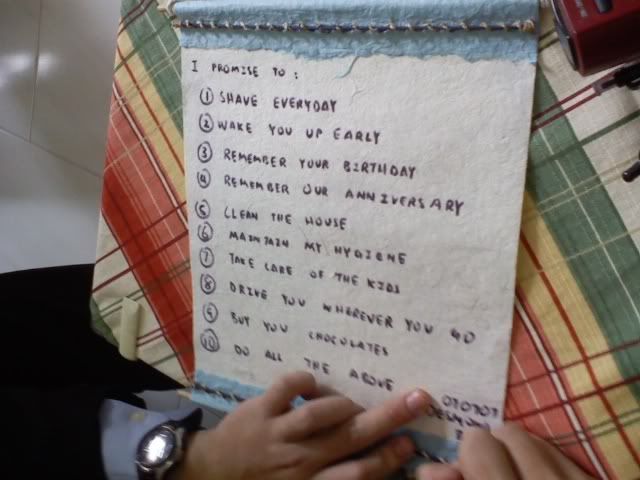 I PROMISE TO :
1 SHAVE EVERYDAY
2 WAKE YOU UP EARLY
3 REMEMBER YOUR BIRTHDAY
4 REMEMBER OUR ANNIVERSARY
5 CLEAN THE HOUSE
6 MAINTAIN MY HYGIENE
7 TAKE CARE OF THE KIDS
8 DRIVE YOU WHEREVER YOU GO
9 BUY YOU CHOCOLATES
10 DO ALL THE ABOVE
070707